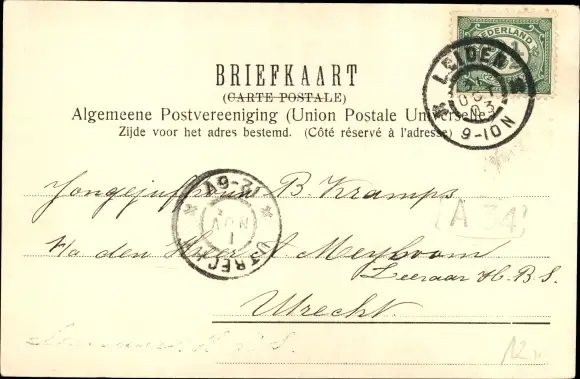 NEDERLAND
LEIDEN
OCT
03
9-10N
BRIEFKAART
(CARTE POSTALE)
Algemeene Postvereeniging (Union Postale Universelle)
Zijde voor het adres bestemd. (Côté réservé à l'adresse)
Jongejufvrouw B. Kramps
(A 34)
12-6V
1
NOV
UTRECHT
p/a den Heer A Meyboom
Leeraar H.B.S.
Utrecht.
12